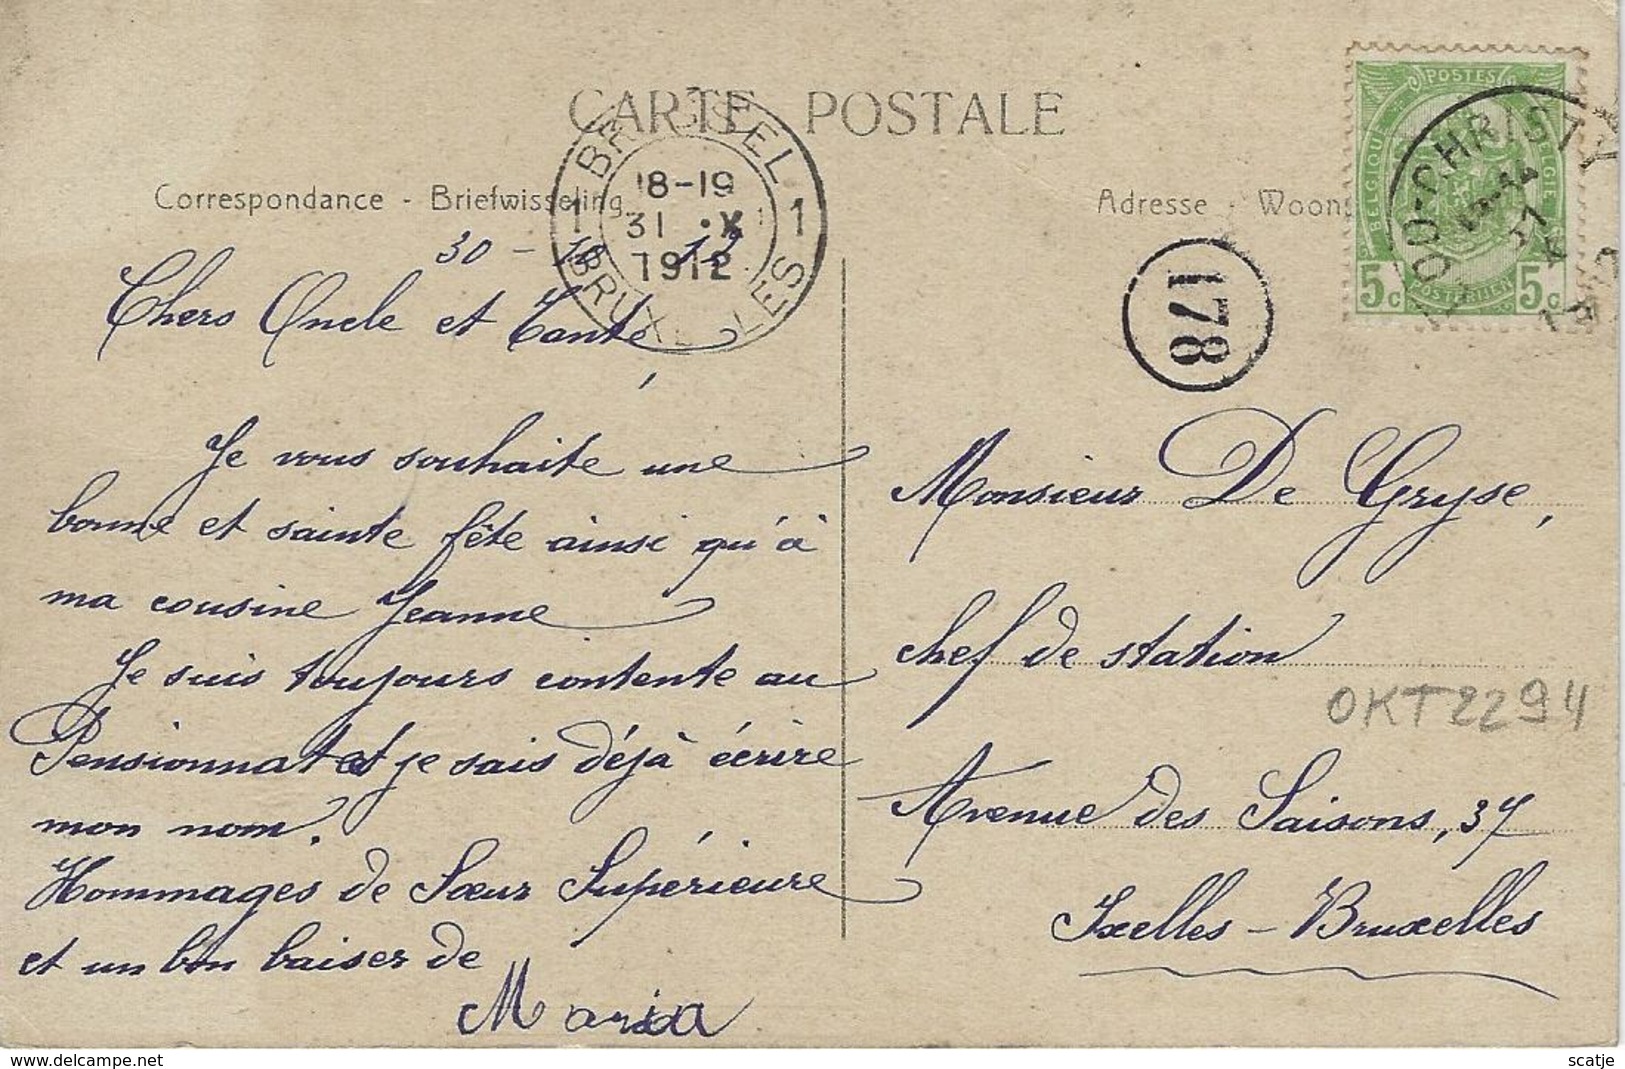 CARTE POSTALE
Correspondance - Briefwisseling
Adresse - Woon
BRUSSEL
1 18-19 1
31 X
1912
BRUXELLES
POSTES
BELGIQUE
BELGIE
5c POSTERIJEN 5c
CHRISTY
178
30-10 12
Chers Oncle et Tante,
Je vous souhaite une
bonne et sainte fête ainsi qu'à
ma cousine Jeanne
Je suis toujours contente au
Pensionnat et je sais déjà écrire
mon nom.
Hommages de Sœur Supérieure
et un bon baiser de
Maria
Monsieur De Gryse,
chef de station
OKT2294
Avenue des Saisons, 37
Ixelles - Bruxelles
delcampe.net
scatje